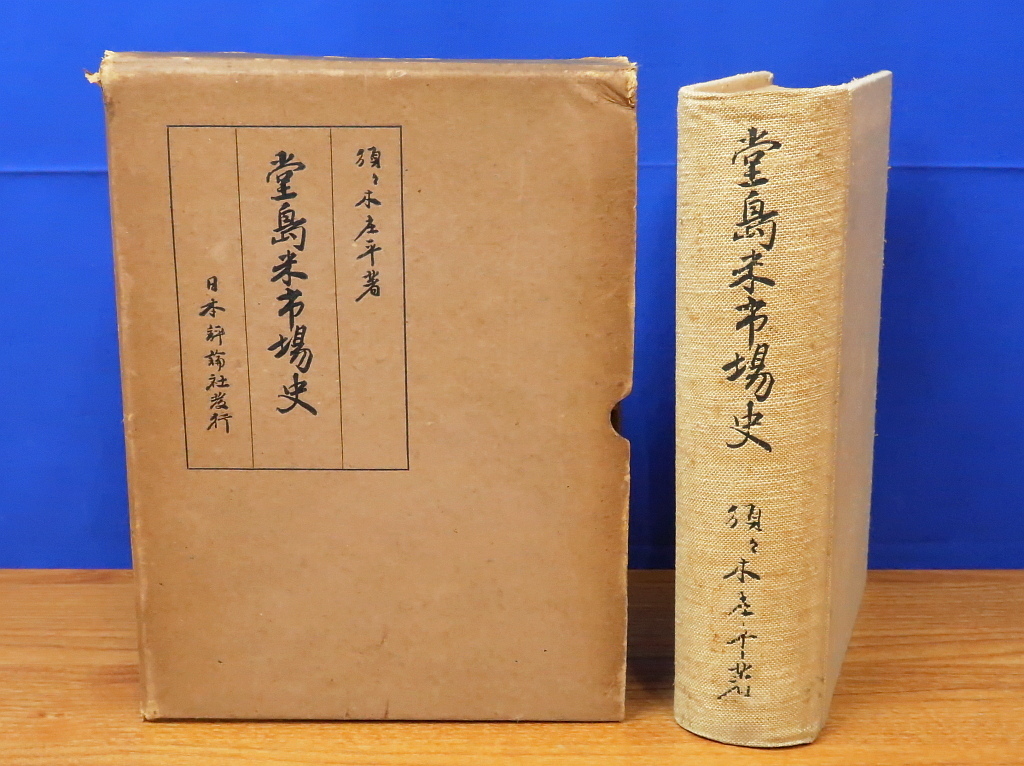 須々木庄平著
堂島米市場史
日本評論社発行
堂島米市場史
須々木庄平著